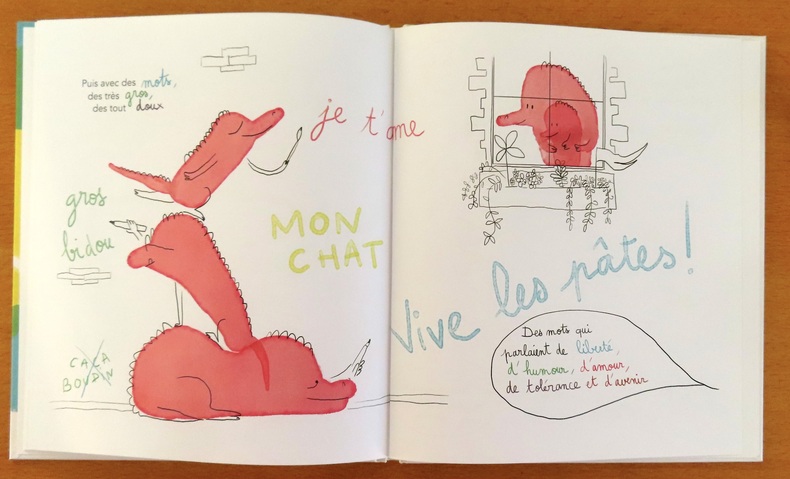 Puis avec des mots,
des très gros,
des tout doux
je t'ame
gros
bidou
MON
CHAT
CACA
BOUDIN
Vive les pâtes!
Des mots qui
parlaient de liberté,
d'humour, d'amour,
de tolérance et d'avenir